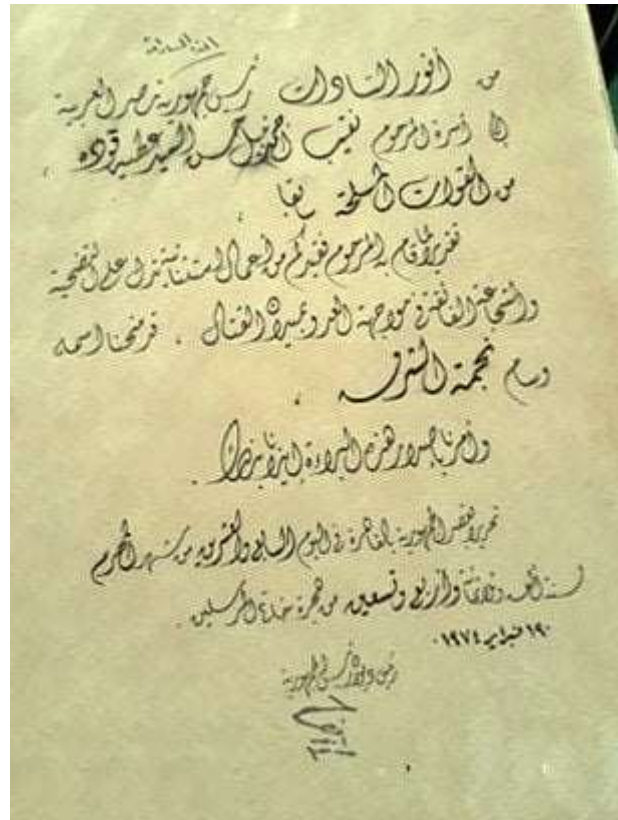 من أنور السادات رئيس جمهورية مصر العربية
إلى أسرة المرحوم نقيب أحمد حسن السيد عطيه قوده
من القوات المسلحة سابقا
تقديرا لما قام به المرحوم فقيدكم من أعمال استثنائية تدل على التضحية
والشجاعة الفائقة في مواجهة العدو بميدان القتال ، قد منحنا اسمه
وسام نجمة الشرف ،
وأمرنا بإصدار هذه البراءة إيذانا بذلك .
تحريرا بقصر الجمهورية بالقاهرة في اليوم السابع والعشرين من شهر المحرم
لسنة ألف وثلاثمائة وأربع وتسعين من هجرة خاتم المرسلين .
١٩ فبراير ١٩٧٤
رئيس ديوان رئيس الجمهورية